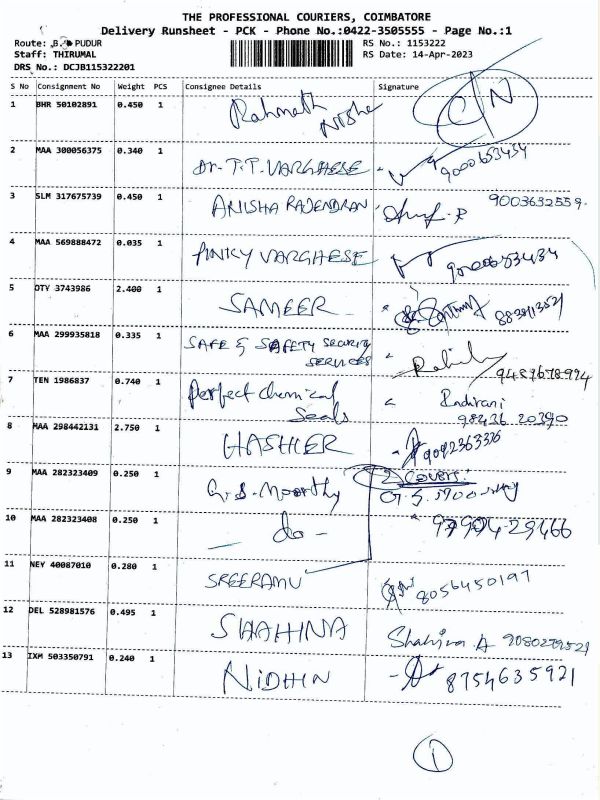 THE PROFESSIONAL COURIERS, COIMBATORE
Delivery Runsheet - PCK - Phone No.:0422-3505555 - Page No.:1
Route: B. PUDUR RS No.: 1153222
Staff: THIRUMAL RS Date: 14-Apr-2023
DRS No.: DCJB115322201
S No Consignment No Weight PCS Consignee Details Signature
1 BHR 50102891 0.450 1 Rahmath Nisha C/N
2 MAA 300056375 0.340 1 Dr. T.T. VARGHESE 9000653434
3 SLM 317675739 0.450 1 ANISHA RAJENDRAN 9003632559
4 MAA 569888472 0.035 1 PINKY VARGHESE 9000653434
5 DTY 3743986 2.400 1 SAMEER
6 MAA 299935818 0.335 1 SAFE & SAFETY SECURITY
SERVICES
7 TEN 1986837 0.740 1 Perfect Chemical Indirani
Seals 98436 20390
8 MAA 298442131 2.750 1 HASHEER 9092363336
9 MAA 282323409 0.250 1 G.S. Moorthy 2 Covers.
G.S. Moorthy
10 MAA 282323408 0.250 1 - do - 97904-29466
11 NEY 40087010 0.280 1 SREERAMU 8056450197
12 DEL 528981576 0.495 1 SHAHINA Shahina A 9080279521
13 IXM 503350791 0.240 1 NIDHIN 8754635921
1